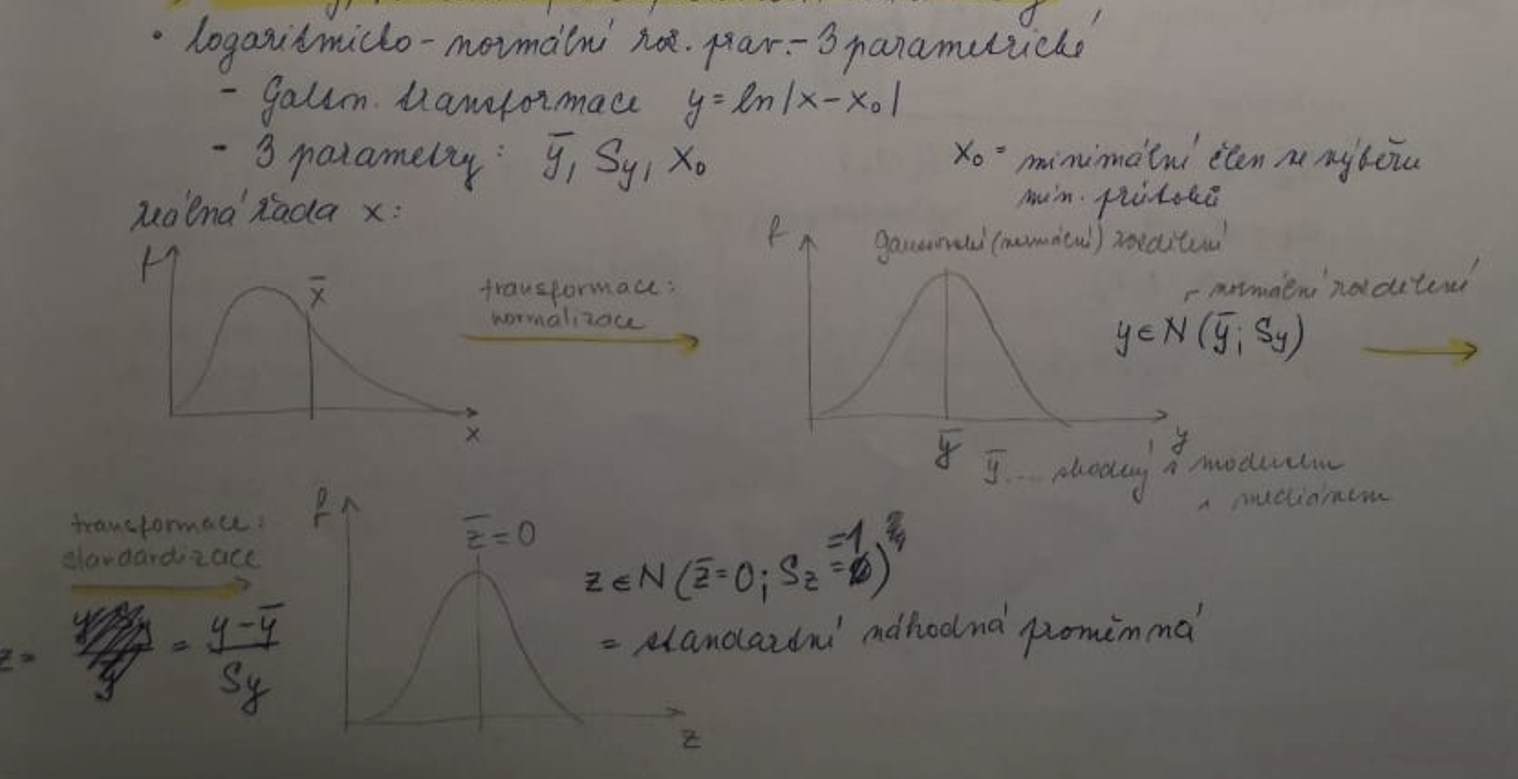 • logaritmicko-normální roz. prav. - 3 parametrické
- Galton. transformace y = ln|x-x₀|
- 3 parametry: ȳ, Sy, x₀
x₀ = minimální člen ve výběru
min. průtoků
reálná řada x:
f
x̄
x
transformace:
normalizace
f
gaussovské (normální) rozdělení
ȳ
y
normální rozdělení
y ∈ N (ȳ; Sy)
ȳ.... shodný s modusem
a mediánem
transformace:
standardizace
z = = y-ȳ / Sy
f
z̄ = 0
z
z ∈ N (z̄ = 0; Sz = 1)
= standardní náhodná proměnná